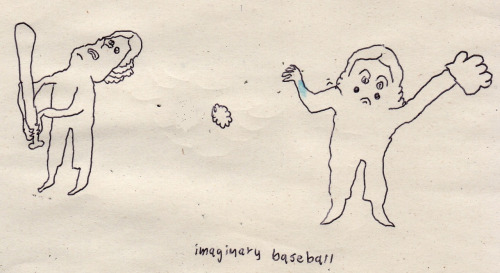 imaginary baseball